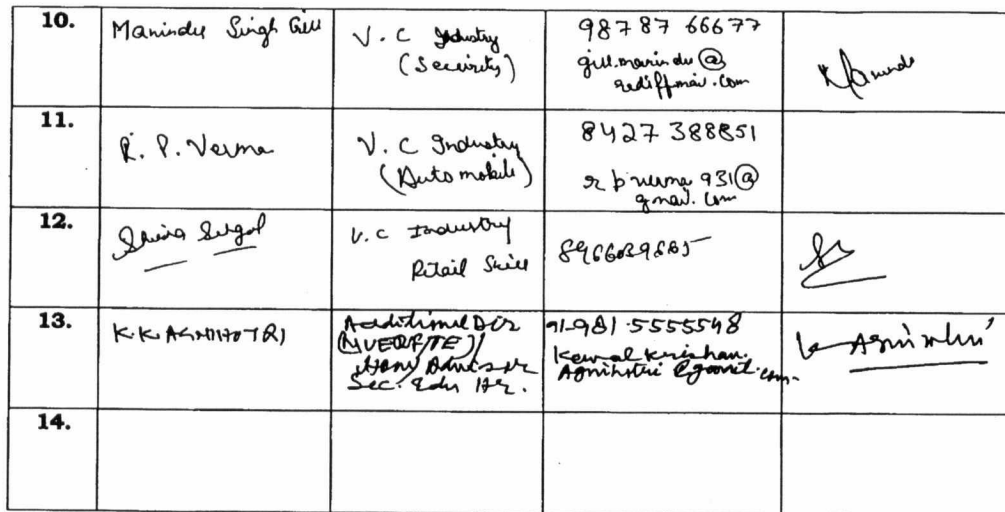 10.
Maninder Singh Gill
V. C Industry
(Security)
98787 66677
gill.maninder@
rediffmail.com
11.
R. P. Verma
V. C Industry
(Automobile)
8427388851
r p verma 931@
gmail.com
12.
V. C Industry
Retail Skill
13.
K.K. AGNIHOTRI
Additional Dir
Sec. Edu Hr.
91-981-5555548
Kewal Krishan.
Agnihotri@gmail.com
Agnihotri
14.